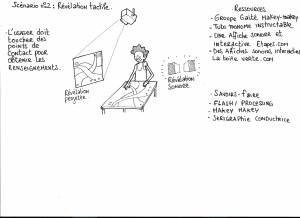 Scénario n°2 : Révélation tactile.
- L'usager doit
toucher des
points de
contact pour
obtenir les
renseignements.
Révélation
projetée
Révélation
Sonore
- Ressources
- Groupe Gaîté Makey-makey
- Tuto monome instructable
- Une Affiche sonore et
interactive Etapes.com
- Des Affiches sonores, interactives
La boite verte.com
- Savoirs-faire
- FLASH / PROCESSING
- MAKEY MAKEY
- SERIGRAPHIE CONDUCTRICE